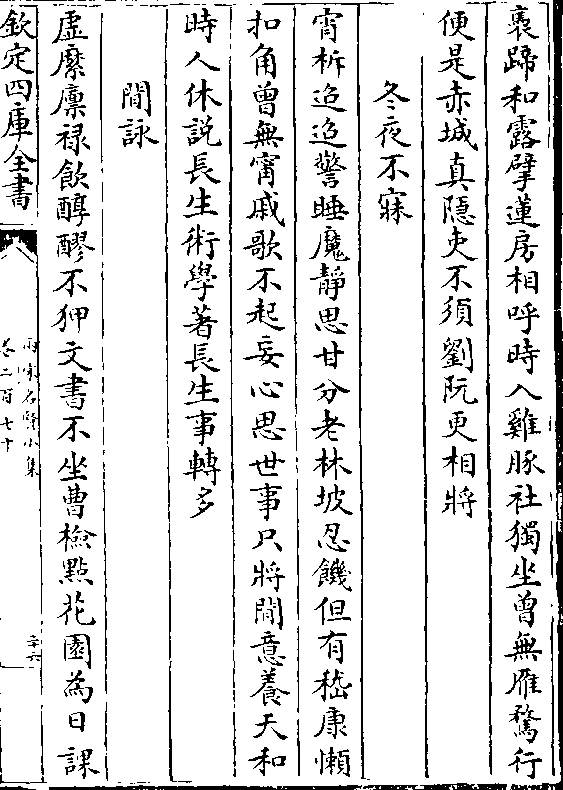 裹蹄和露擘蓮房相呼時入雞豚社獨坐曾無雁鶩行
便是赤城真隱吏不須劉阮更相將
冬夜不寐
宵柝迢迢警睡魔靜思甘分老林坡忍饑但有嵇康懶
扣角曾無甯戚歌不起妄心思世事只將閒意養天和
時人休説長生術學著長生事轉多
閒詠
虛縻廩禄飲醇醪不狎文書不坐曹檢點花園為日課
欽定四庫全書
兩宋名賢小集
卷二百七十
二十六